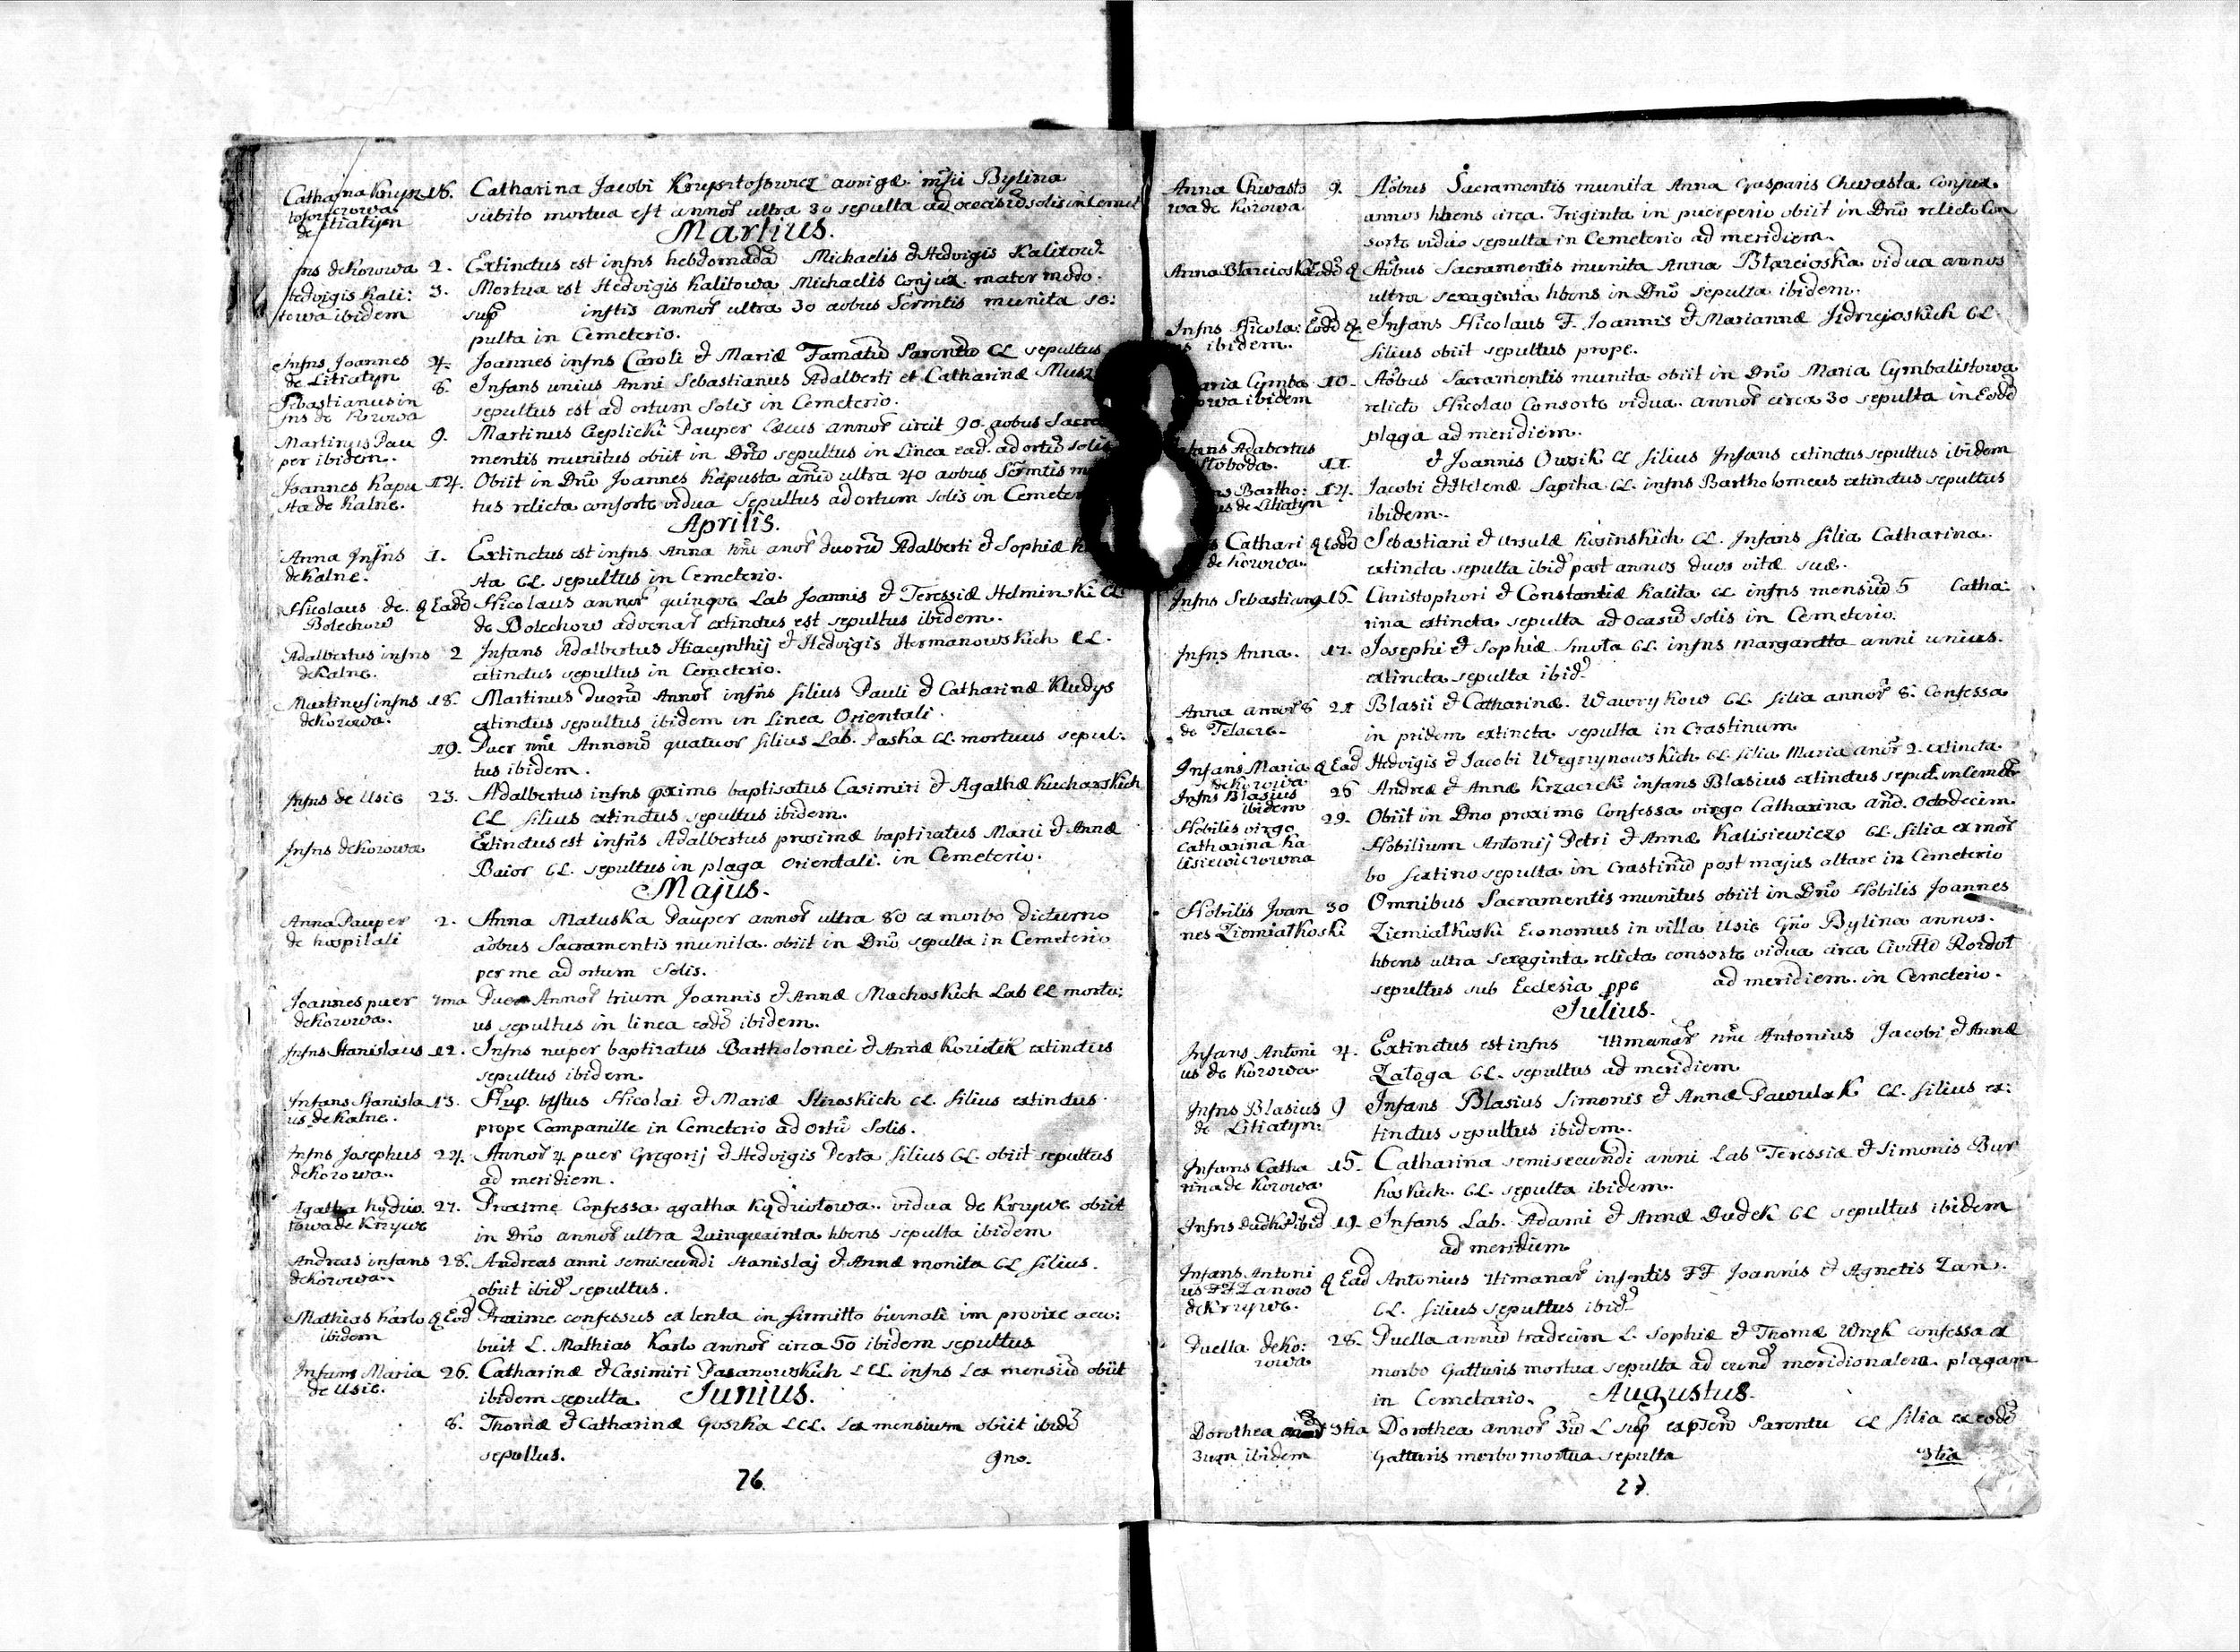 Catharina Krysz 16. Catharina Jacobi Krysztofowicz aurigæ Bylina
de Litiatyn subito mortua est annor ultra 30 sepulta ad occasũ solis in Cemet
Martius.
Infns de Korowa 2. Extinctus est infns hebdomadæ Michaelis & Hedvigis Kalitow
Hedvigis Kali: 3. Mortua est Hedvigis Kalitowa Michaelis Conjux mater modo
towa ibidem sup inftis annor ultra 30 aobus Scrmtis munita se:
pulta in Cemeterio.
Infns Joannes 4. Joannes infns Caroli & Mariæ Famatũ Parentũ CL sepultus
de Litiatyn
Sebastianus in 8. Infans unius Anni Sebastianus Adalberti et Catharinæ
fns de Korowa sepultus est ad ortum Solis in Cemeterio.
Martinus Pau 9. Martinus Cieplicki Pauper Cæcus annor circit 90. aobus Sacra
per ibidem. mentis munitus obiit in Dno sepultus in Linea ead. ad ortũ solis
Joannes Kapu 14. Obiit in Dno Joannes Kapusta annũ ultra 40 aobus Scrmtis
sta de Kalne. tus relicta consorte vidua Sepultus ad ortum Solis in Cemeter
Aprilis.
Anna Infns 1. Extinctus est infns Anna nne anor duorũ Adalberti & Sophiæ
de Kalne. sta CL. sepultus in Cemeterio.
Nicolaus de & Eadd Nicolaus annor quinqve Lab Joannis & Teressiæ Helminski CL
Bolechow de Bolechow advenar extinctus est sepultus ibidem.
Adalbertus infns 2 Infans Adalbertus Hiacynthij & Hedvigis Hermanowskich CL.
de Kalne. extinctus sepultus in Cemeterio.
Martinus infns 18. Martinus duorũ Annor infns filius Pauli & Catharinæ Kludys
de Korowa. extinctus sepultus ibidem in Linea Orientali.
19. Puer nne Annorũ quatuor filius Lab. Paska CL. mortuus sepul:
tus ibidem.
Infns de Usie 23. Adalbertus infns pxime baptisatus Casimiri & Agathæ Kucharskich
CL filius extinctus sepultus ibidem.
Infns de Korowa Extinctus est infns Adalbertus proximæ baptizatus & Annæ
Baior CL. sepultus in plaga Orientali. in Cemeterio.
Majus.
Anna Pauper 2. Anna Matuska Pauper annor ultra 80 ex morbo dicturno
de hospitali aobus Sacramentis munita obiit in Dno sepulta in Cemeterio
per me ad ortum Solis.
Joannes puer 7ma Puer Annor trium Joannis & Annæ Machoskich Lab CL mortu:
de Korowa. us sepultus in linea eodd ibidem.
Infns Stanislaus 12. Infns nuper baptizatus Bartholomei & Annæ Koziolik extinctus
sepultus ibidem.
Infans Stanisla 13. Nup. btstus Nicolai & Mariæ CL. filius extinctus
us de Kalne. prope Campanille in Cemeterio ad ortũ Solis.
Infns Josephus 24. Annor 4 puer Gregorij & Hedvigis Perta filius CL obiit sepultus
de Korowa. ad meridiem.
Agatha Kydiw. 27. Proxime Confessa agatha Kydiwtowa vidua de Krzywe obiit
towa de Krzywe in Dno annor ultra Quinquainta hbens sepulta ibidem
Andreas infans 28. Andreas anni semisecundi Stanislaj & Annæ monita CL filius.
de Korowa obiit ibid sepultus.
Mathias Karlo & Eod Proxime confessus ex lenta in firmitte biennali im provize accu:
ibidem buit L. Mathias Karlo annor circa 50 ibidem sepultus
Infans Maria 26. Catharinæ & Casimiri Pasanowskich LCL. infns sex mensiũ obiit
de Usie. ibidem sepulta. Junius.
8. Thomæ & Catharinæ Goszka LCL. sex mensium obiit ibidd
sepultus. 9no.
26.
Anna Chwasto 9. Aobus Sacramentis munita Anna Gasparis Chwasta Conjux
wa de Korowa annos hbens circa Triginta in puerperio obiit in Dno relicto Con
sorte viduo sepulta in Cemeterio ad meridiem.
Anna Btazcioska Eodd & Aobus Sacramentis munita Anna Btazcioska vidua annos
ultra sexaginta hbens in Dno sepulta ibidem.
Infns Nicola: Eodd & Infans Nicolaus F. Joannis & Mariannæ Jedrzejoskich CL
us ibidem. filius obiit sepultus prope.
Maria Cymba 10. Aobus Sacramentis munita obiit in Dno Maria Cymbalistowa
towa ibidem relicto Nicolao Consorte viduo. annor circa 30 sepulta in Eodd
plaga ad meridiem.
Infans Adabertus & Joannis Owsik CL filius Infans extinctus sepultus ibidem
Stoboda. 11.
Bartho: 14. Jacobi & Helenæ Sapiha CL. infns Bartholomeus extinctus sepultus
us de Litiatyn ibidem.
Cathari & Eodd Sebastiani & Ursulæ Kosinskich CL. Infans filia Catharina
de Korowa. extincta sepulta ibid post annos duos vitæ suæ.
Infns Sebastiana 15. Christophori & Constantiæ Kalita CL infns mensiũ 5 Catha:
rina extincta sepulta ad Ocasũ solis in Cemeterio.
Infns Anna. 17. Josephi & Sophiæ Smota CL. infns Margaretta anni unius.
extincta sepulta ibid.
Anna annor 8 21 Blasii & Catharinæ Wawrykow CL filia annor 8. Confessa
de Telacze. in pridem extincta sepulta in Crastinum
Infans Maria & Ead Hedvigis & Jacobi Wegrzynowskich CL filia Maria anor 2. extincta.
de Korowa
Infns Blasius 26 Andreæ & Annæ Krzaczek infans Blasius extinctus sepul. in Cemetr
ibidem
Nobilis virgo 29. Obiit in Dno proxime Confessa virgo Catharina and. Octodecim
Catharina Ka Nobilium Antonij Petri & Annæ Kalisiewiczo CL. filia ex mor
lisiewiczowna bo sepulta in Crastinũ post majus altare in Cemeterio
Nobilis Joan 30 Omnibus Sacramentis munitus obiit in Dno Nobilis Joannes
nes Ziemiatkoski Ziemiatkoski Economus in villa Usie Gno Bylina annos.
hbens ultra sexaginta relicta consorte vidua circa
sepultus sub Ecclesia ppe ad meridiem in Cemeterio.
Julius.
Infans Antoni 4. Extinctus est infns nne Antonius Jacobi & Annæ
us de Korowa Zatoga CL. sepultus ad meridiem
Infns Blasius 9 Infans Blasius Simonis & Annæ Pawulak CL. filius ex:
de Litiatyn. tinctus sepultus ibidem.
Infans Catha 15. Catharina semisecundi anni Lab Teressiæ & Simonis Bur
rina de Korowa koskich. CL. sepulta ibidem.
Infns Dudk ibid 19. Infans Lab. Adami & Annæ Dudek CL sepultus ibidem
ad meridiem
Infans Antoni & Ead Antonius infntis FF Joannis & Agnetis Zan.
us FF Zanow
de Krzywe. CL. filius sepultus ibid
Puella de Ko: 28. Puella anniũ tradecim L. Sophiæ & Thomæ confessa ex
rowa morbo Gatturis mortua sepulta ad eund meridionalem plagam
in Cemetario. Augustus.
Dorothea 3tia Dorothea annor 3ũ L sup Parentu CL filia ex eodd
3um ibidem Gatturis morbo mortua sepulta 3tia
27